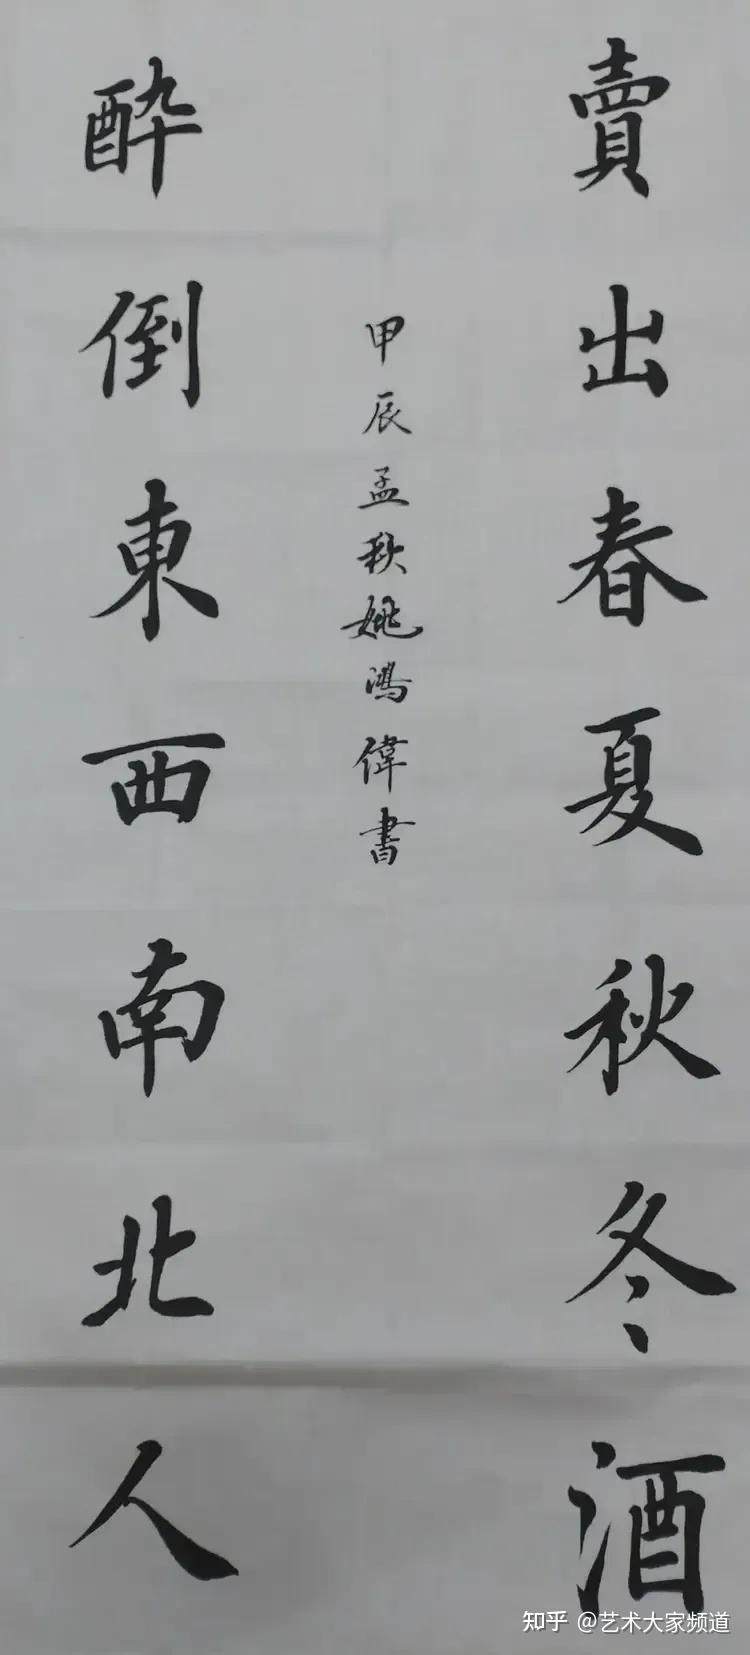 賣出春夏秋冬酒
醉倒東西南北人
甲辰孟秋姚鴻偉書
知乎 @艺术大家频道